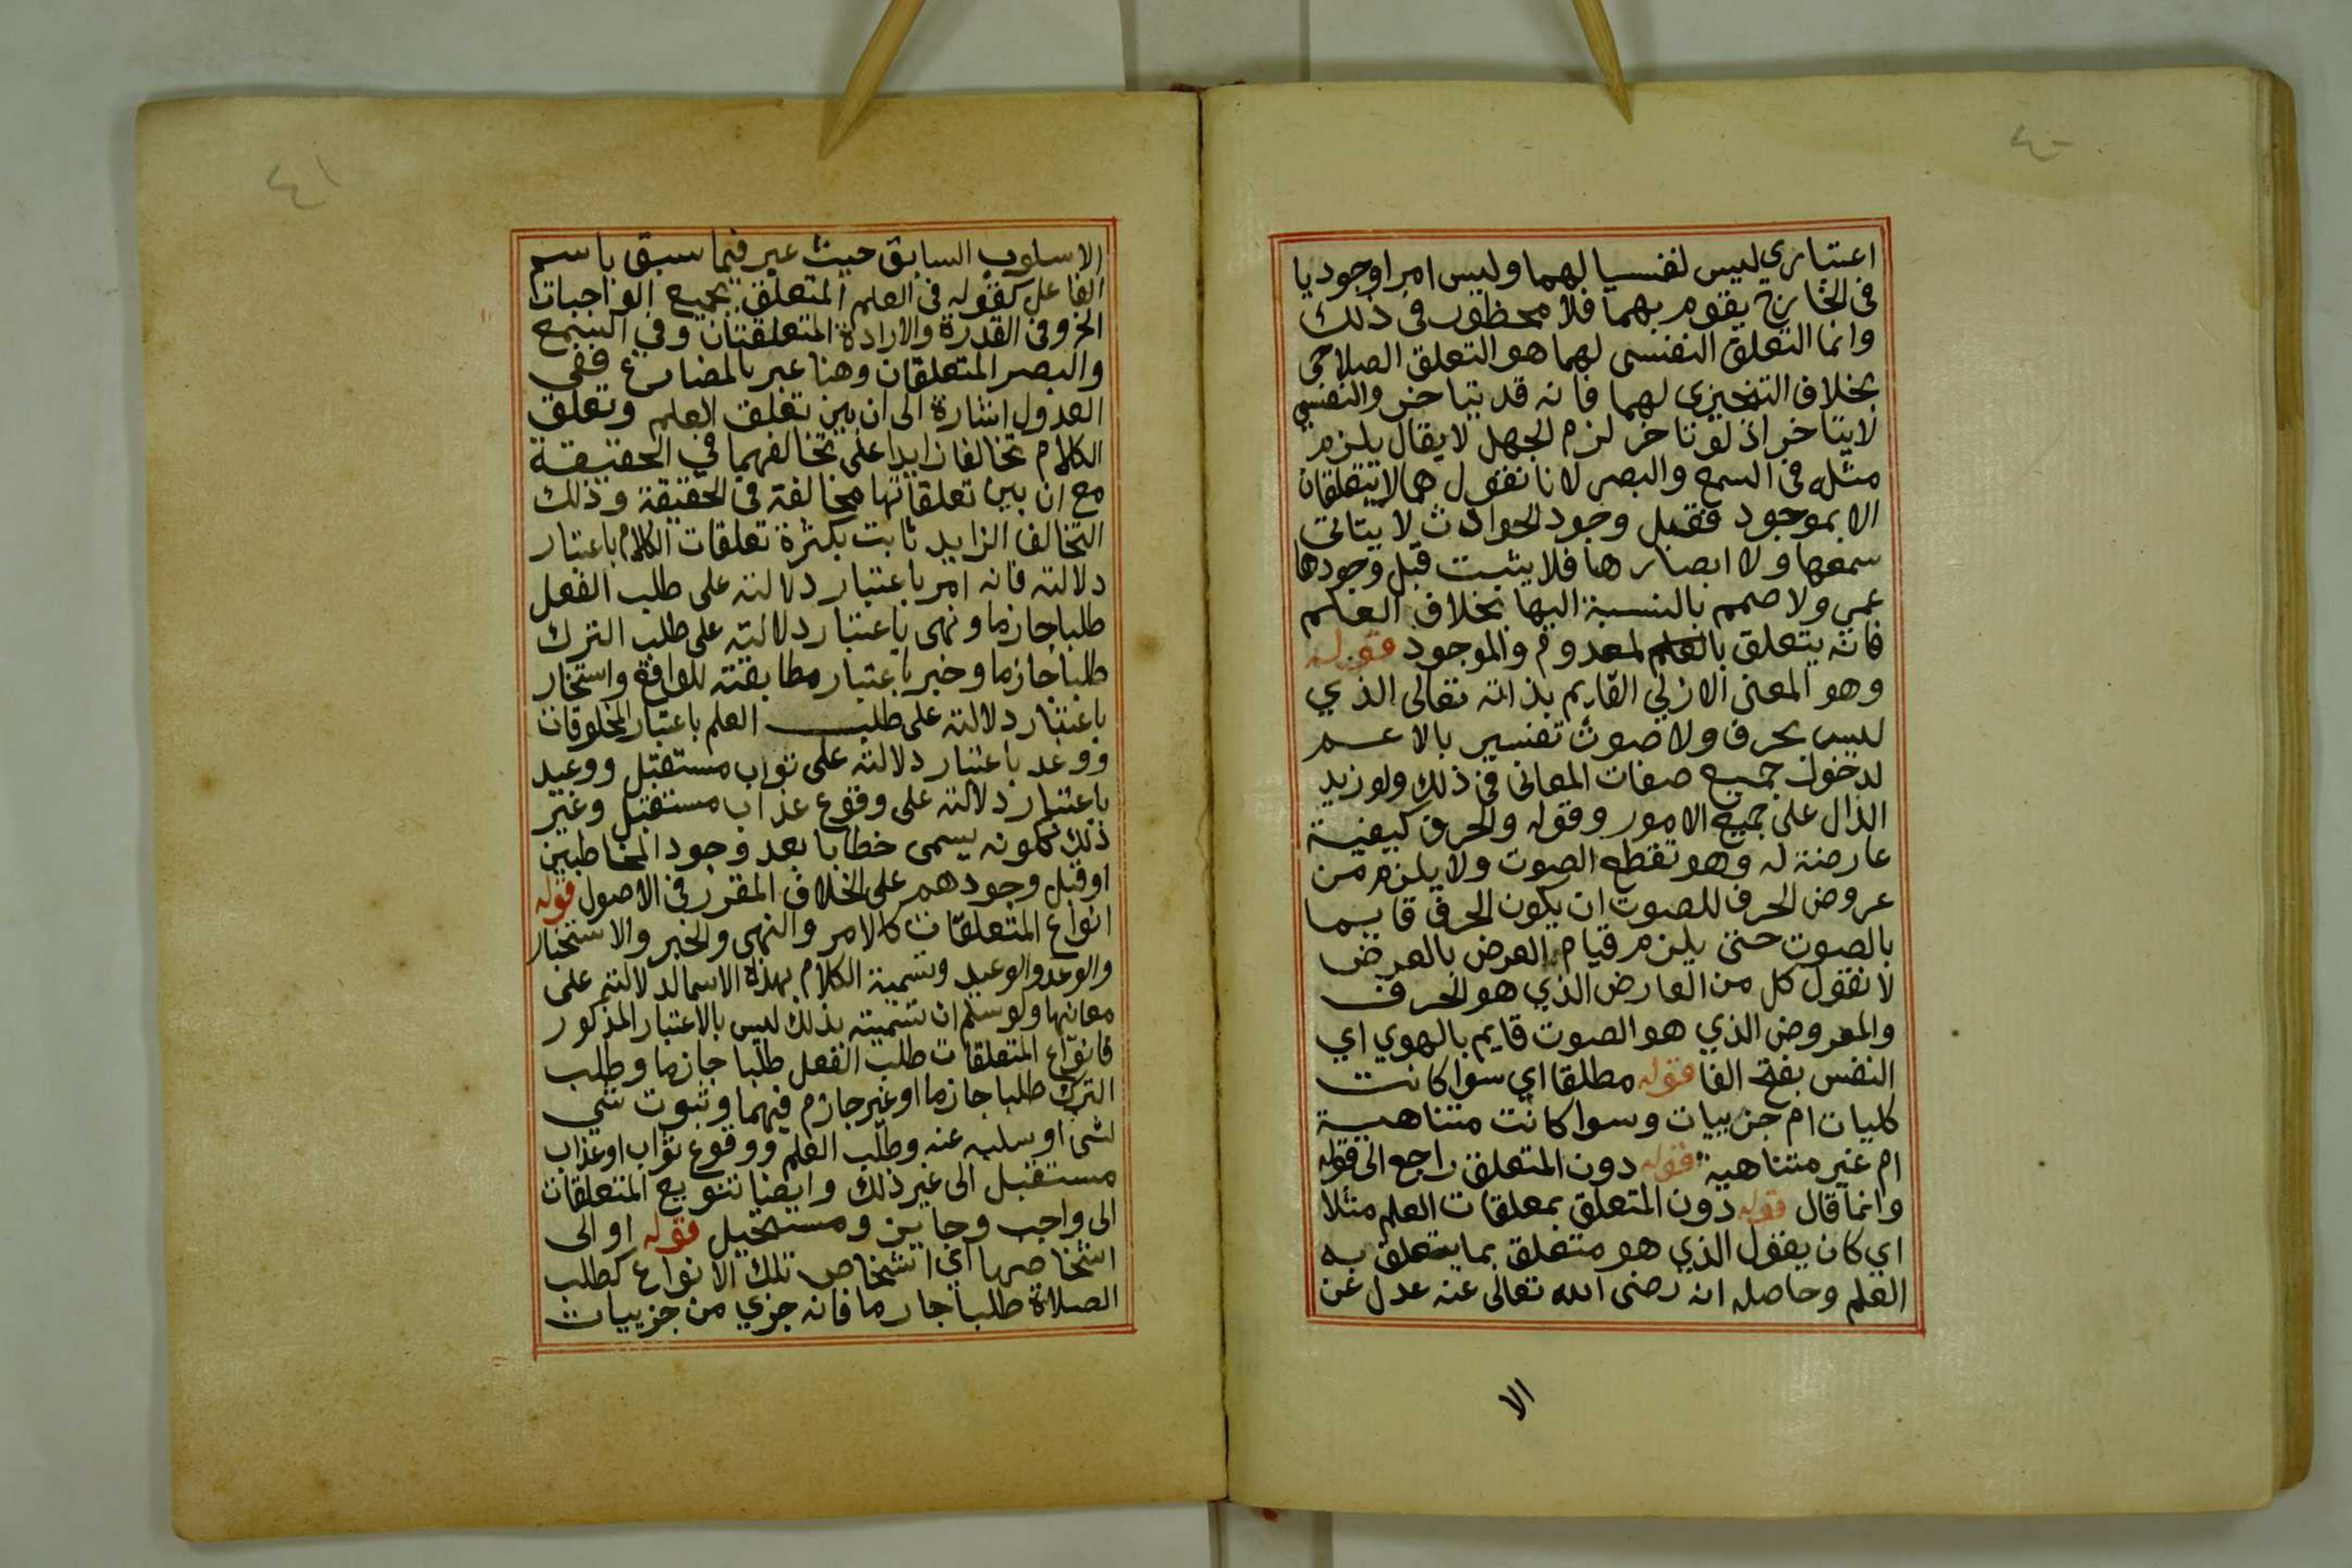 ٤٠
اعتباري ليس لنفسيا لهما وليس امرا وجوديا
في الخارج يقوم بهما فلا محظور في ذلك
وانما التعلق النفسي لهما هو التعلق الصلاحي
بخلاف التنجيزى لهما فانه قد يتاخر والنفسي
لا يتاخر اذ لو تاخر لزم الجهل لا يقال يلزم
مثله في السمع والبصر لانا نقول هما لا يتعلقان
الا بموجود فقبل وجود الحوادث لا يتاتى
سمعها ولا ابصارها فلا يثبت قبل وجودها
عمى ولا صمم بالنسبة اليها بخلاف العلم
فانه يتعلق بالمعدوم والموجود قوله
وهو المعنى الازلي القايم بذاته تعالى الذي
ليس بحرف ولا صوت تفسير بالاعم
لدخول جميع صفات المعاني في ذلك ولو زيد
الدال على جميع الامور وقوله والحرف كيفية
عارضة له وهو تقطع الصوت ولا يلزم من
عروض الحرف للصوت ان يكون الحرف قايما
بالصوت حتى يلزم قيام العرض بالعرض
لا نقول كل من العارض الذي هو الحرف
والمعروض الذي هو الصوت قايم بالهوي اي
النفس بفتح الفا قوله مطلقا اي سوا كانت
كليات ام جزييات وسوا كانت متناهية
ام غير متناهية قوله دون المتعلق راجع الى قوله
وانما قال قوله دون المتعلق بمعلقات العلم مثلا
اي كان يقول الذي هو متعلق بما يتعلق به
العلم وحاصله انه رضى الله تعالى عنه عدل عن
الا
٤١
الاسلوب السابق حيث عبر فيما سبق باسم
الفاعل كقوله في العلم المتعلق بجميع الواجبات
الخ وفي القدرة والارادة المتعلقتان وفي السمع
والبصر المتعلقان وهنا عبر بالمضارع ففي
العدول اشارة الى ان بين تعلق العلم وتعلق
الكلام تخالفا زايدا على تخالفهما في الحقيقة
مع ان بين تعلقاتها مخالفة في الحقيقة وذلك
التخالف الزايد ثابت بكثرة تعلقات الكلام باعتبار
دلالته فانه امر باعتبار دلالته على طلب الفعل
طلبا جازما ونهى باعتبار دلالته على طلب الترك
طلبا جازما وخبر باعتبار مطابقته للواقع واستخبار
باعتبار دلالته على طلب العلم باعتبار المخلوقات
ووعد باعتبار دلالته على ثواب مستقبل ووعيد
باعتبار دلالته على وقوع عذاب مستقبل وغير
ذلك ككونه يسمى خطابا بعد وجود المخاطبين
او قبل وجودهم على الخلاف المقرر في الاصول قوله
انواع المتعلقات كالامر والنهى والخبر والاستخبار
والوعد والوعيد وتسمية الكلام بهذه الاسما لدلالته على
معانيها ولو سلم ان تسميته بذلك ليس بالاعتبار المذكور
فانواع المتعلقات طلب الفعل طلبا جازما وطلب
الترك طلبا جازما او غير جازم فيهما وثبوت شي
لشي او سلبه عنه وطلب العلم ووقوع ثواب او عذاب
مستقبل الى غير ذلك وايضا تنويع المتعلقات
الى واجب وجايز ومستحيل قوله او الى
اشخاصها اي اشخاص تلك الانواع كطلب
الصلاة طلبا جازما فانه جزي من جزييات